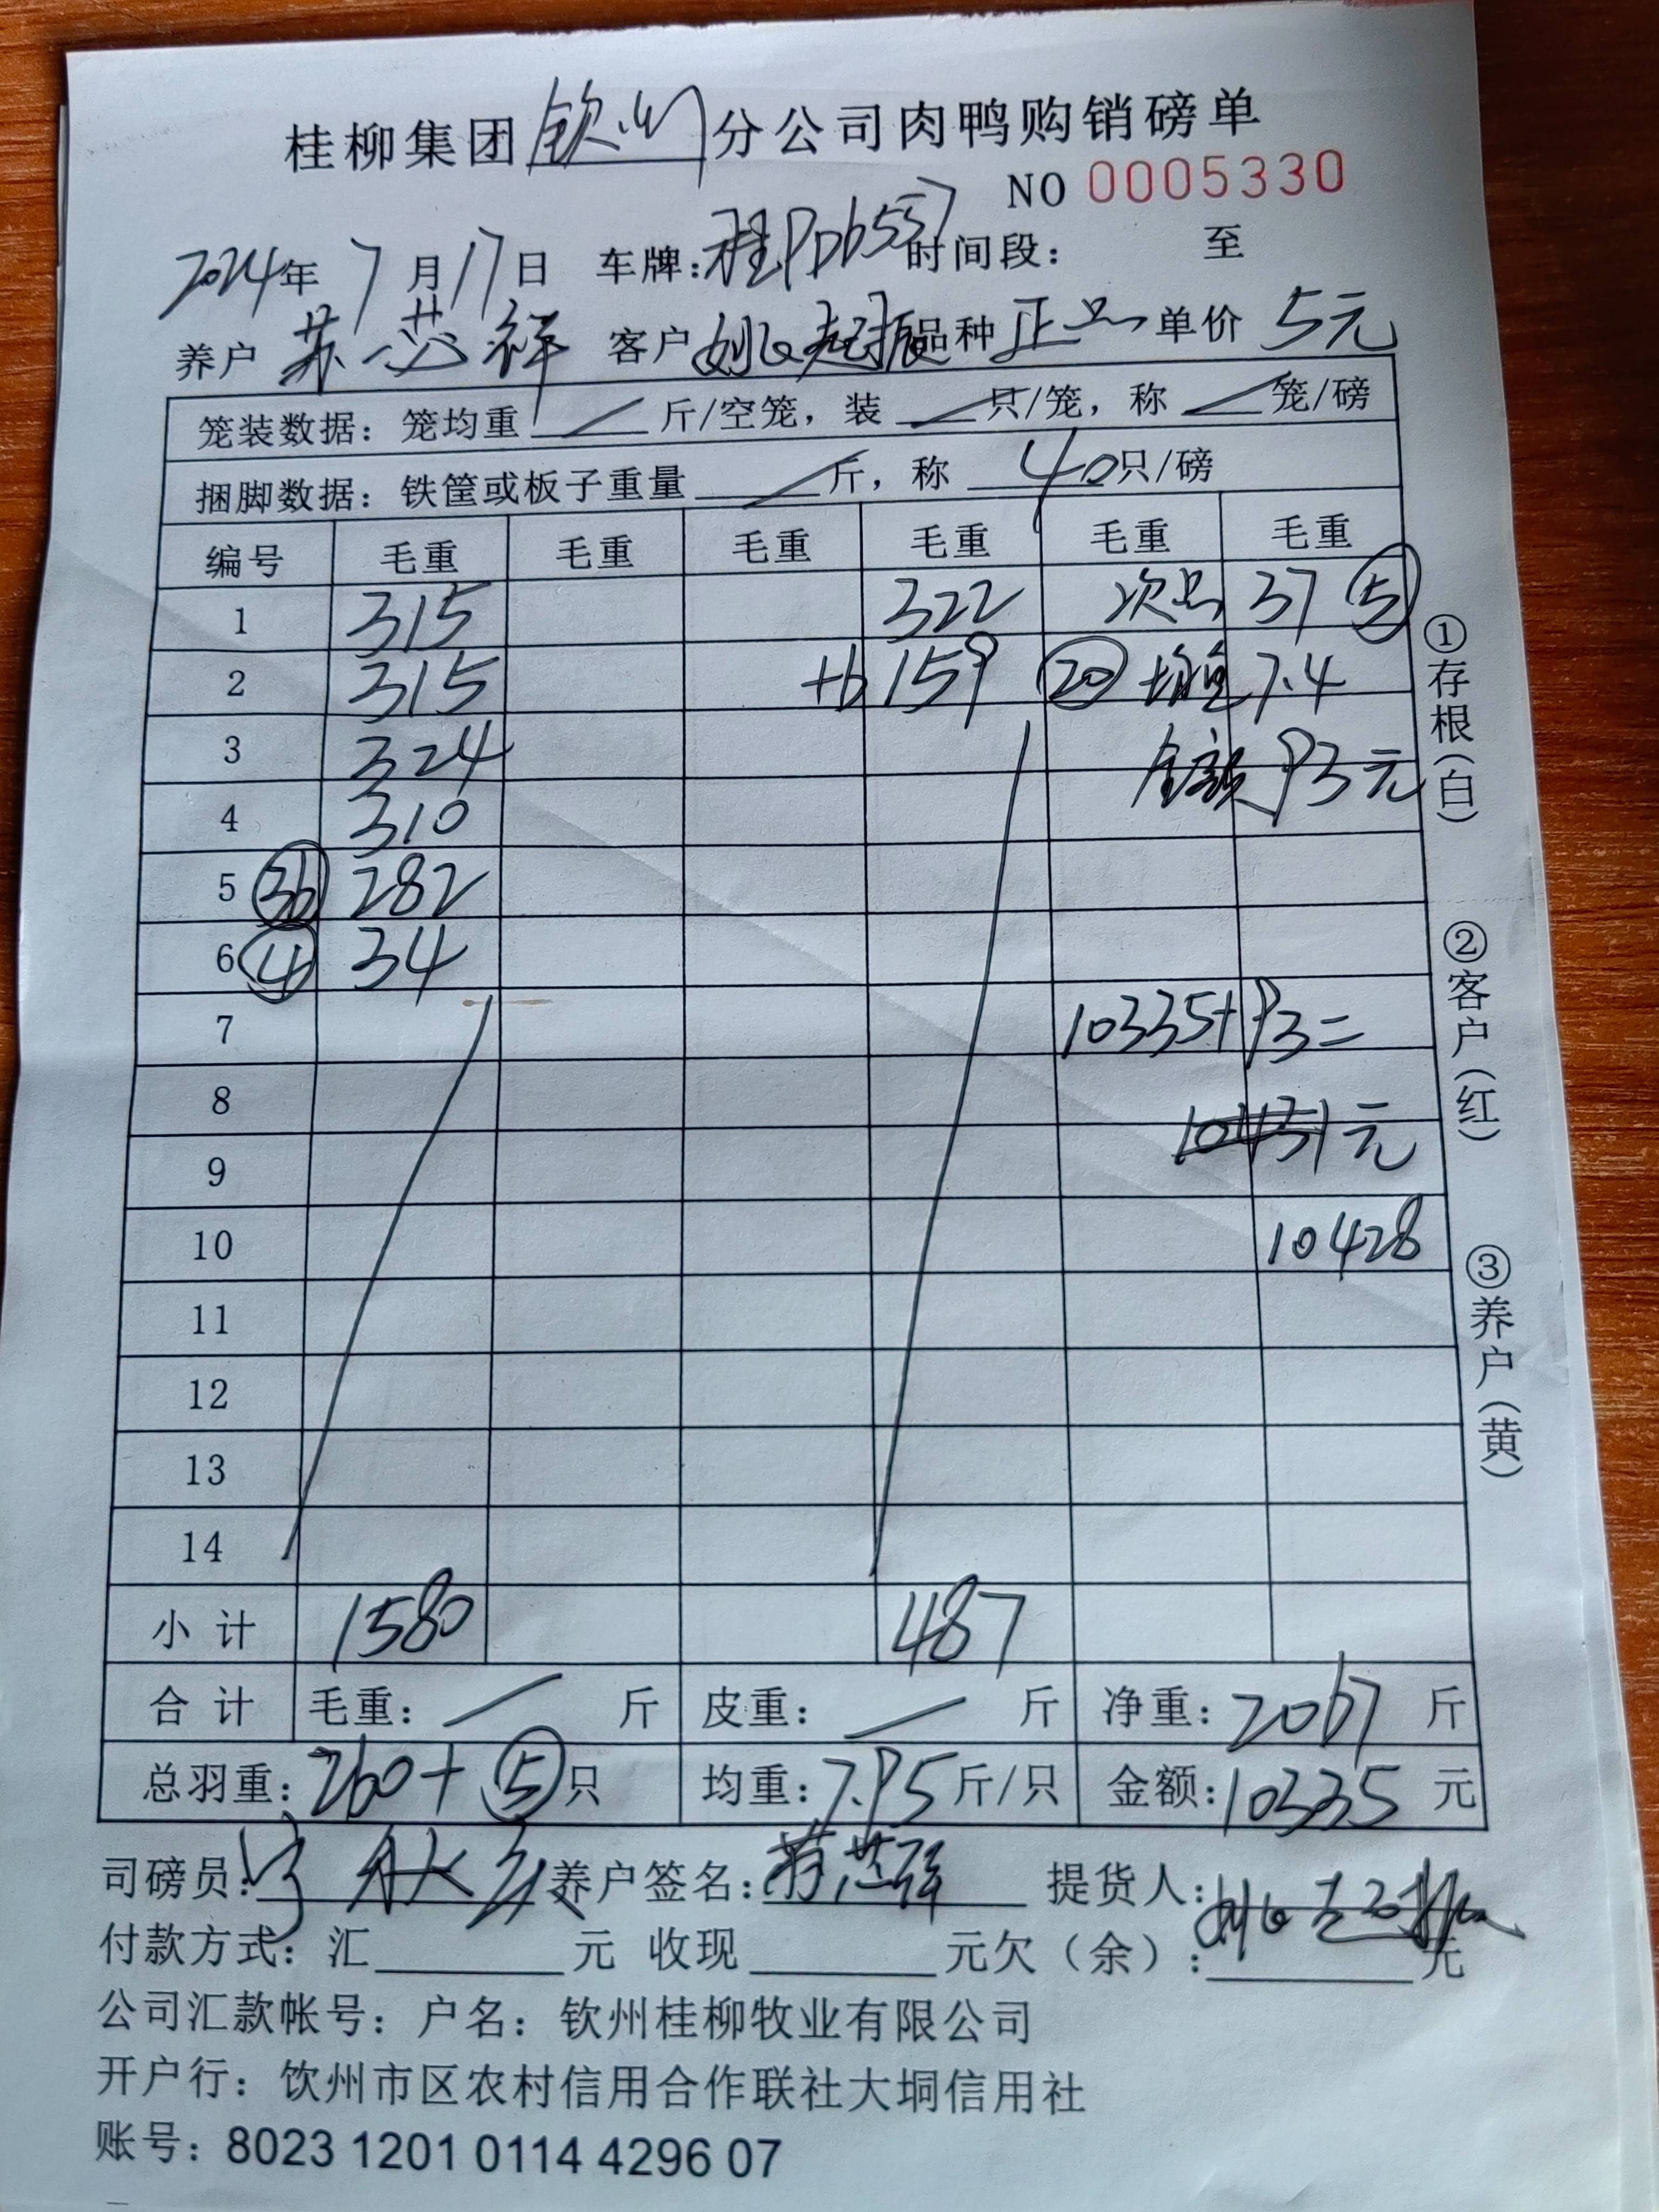 桂柳集团钦州分公司肉鸭购销磅单
NO 0005330
2024年 7月17日 车牌:桂PD6557 时间段: 至
养户 苏芯祥 客户 姚起振 品种 正品 单价 5元
笼装数据: 笼均重 / 斤/空笼, 装 / 只/笼, 称 / 笼/磅
捆脚数据: 铁筐或板子重量 / 斤, 称 40只/磅
编号 毛重 毛重 毛重 毛重 毛重 毛重
1 315 322 次品 37 ⑤
2 315 +6 159 ⑳ 均重 7.4
3 324 金额 93元
4 310
5 ㊱ 282
6 ④ 34
7 10335+93=
8 10431元
9
10 10428
11
12
13
14
小计 1580 487
合计 毛重: / 斤 皮重: / 斤 净重: 2067 斤
总羽重: 260+⑤只 均重: 7.95斤/只 金额: 10335 元
司磅员: 养户签名: 苏芯祥 提货人: 姚起振
付款方式: 汇 元 收现 元欠(余): 元
公司汇款帐号: 户名: 钦州桂柳牧业有限公司
开户行: 饮州市区农村信用合作联社大垌信用社
账号: 8023 1201 0114 4296 07
①存根(白)
②客户(红)
③养户(黄)